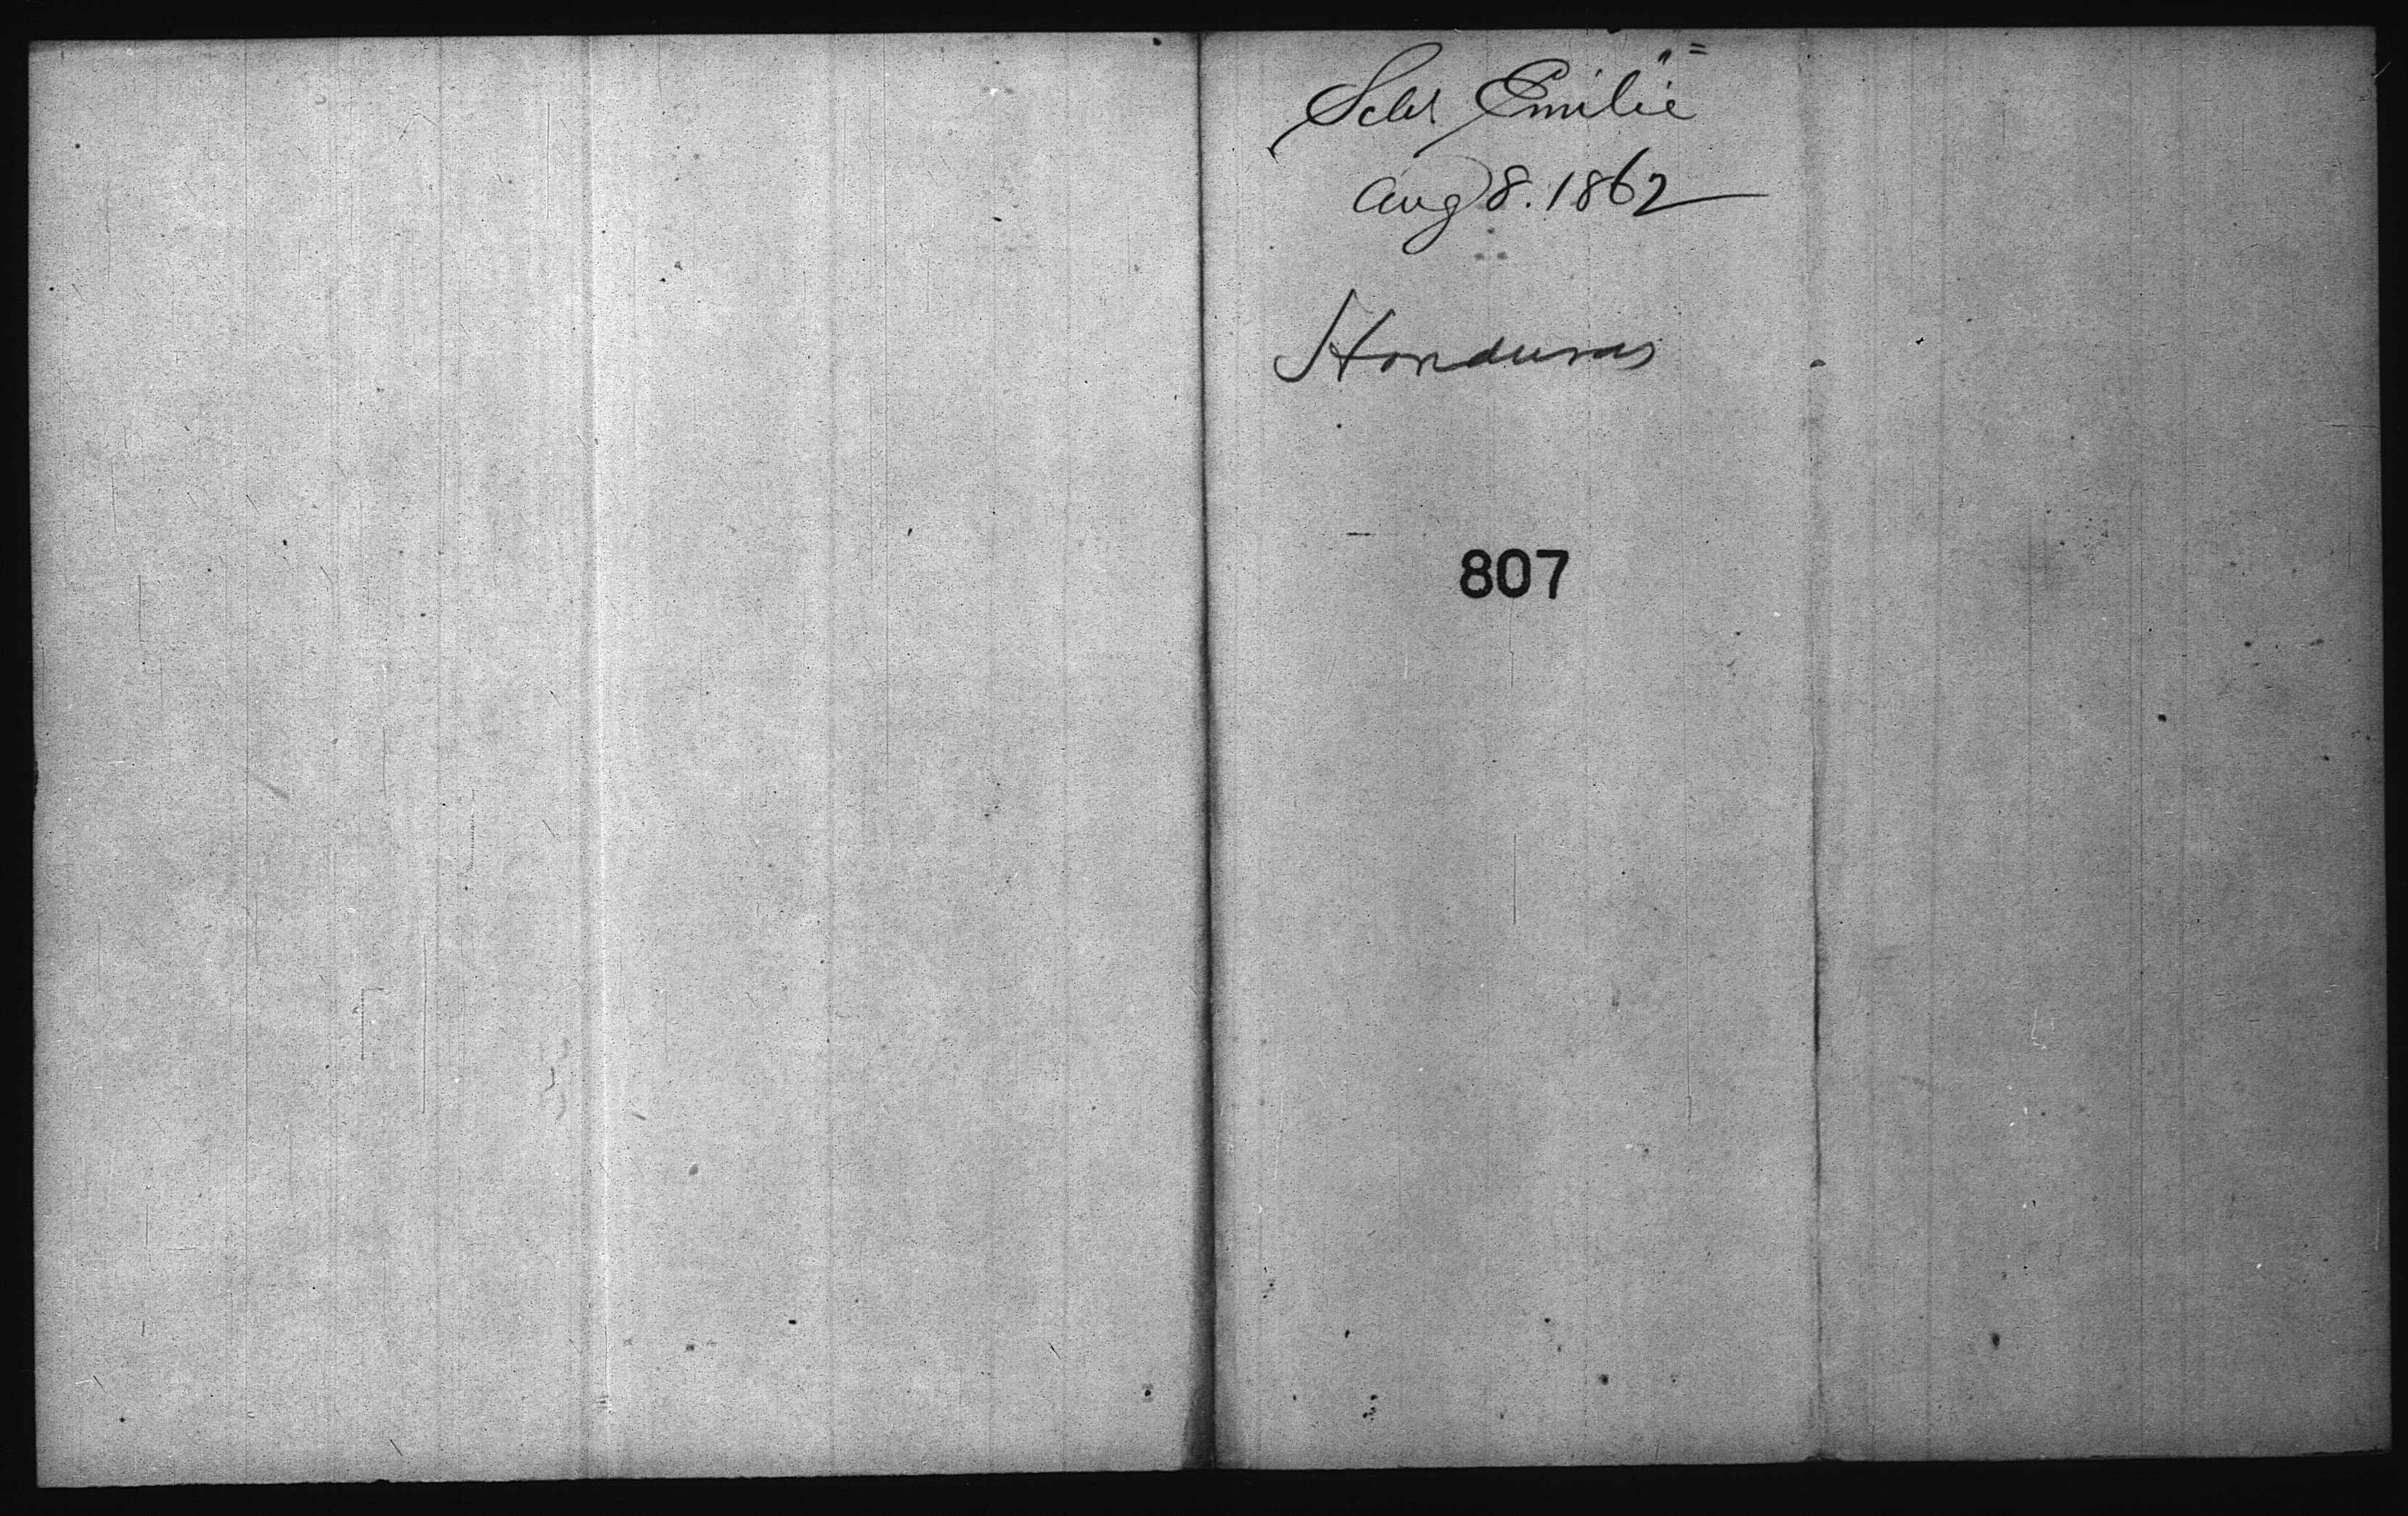 Schr Emilie "
Aug 8. 1862
Honduras
807